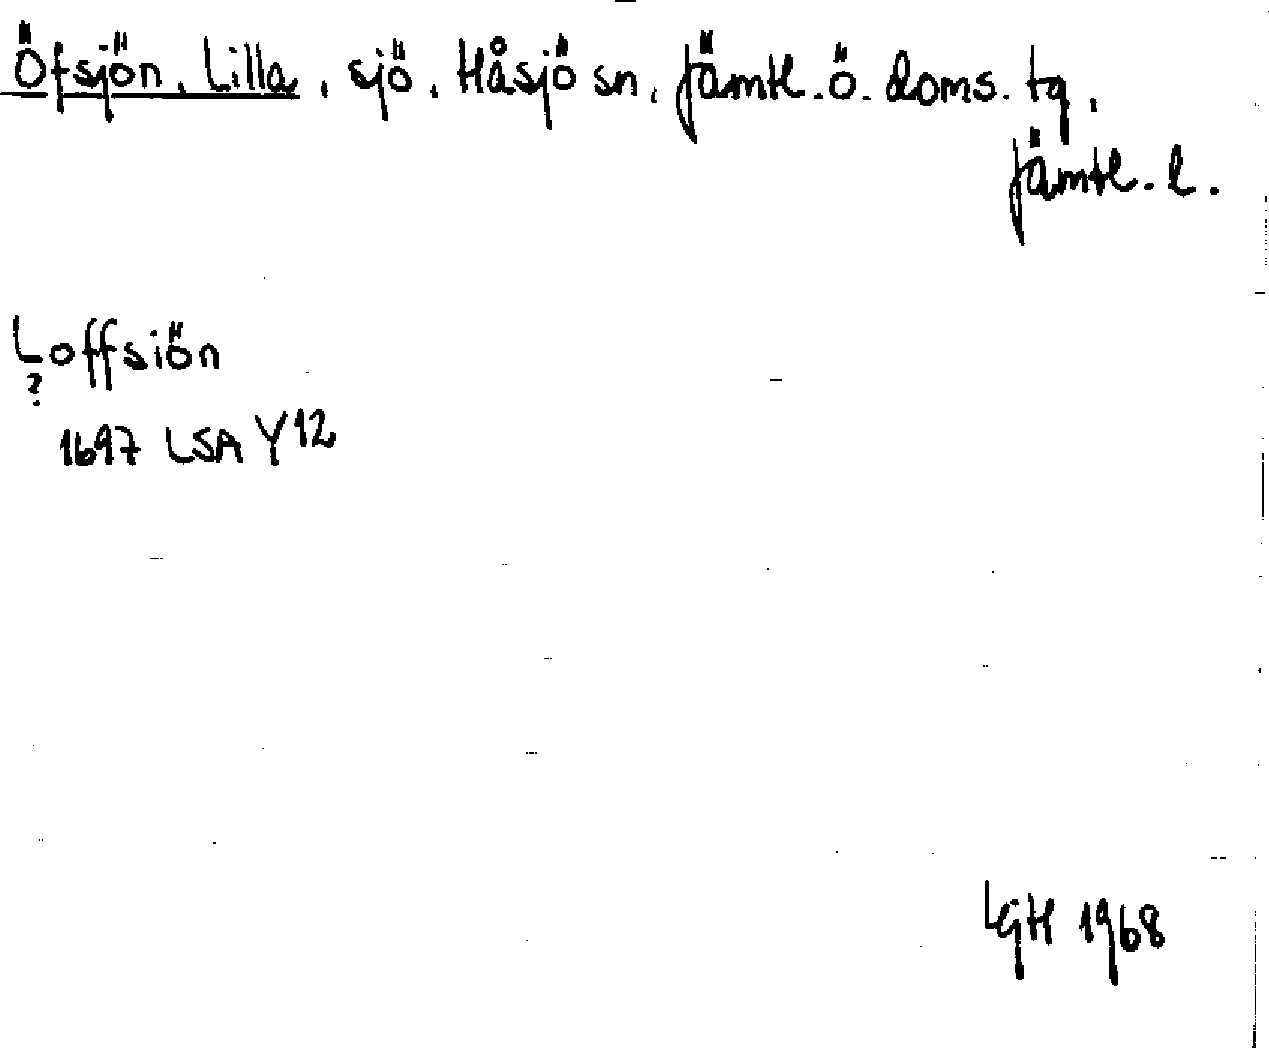 Öfsjön, Lilla, sjö, Håsjö sn, Jämtl. ö. doms. tg,
Jämtl. l.
Loffsiön
?
1697 LSA Y12
LGH 1968